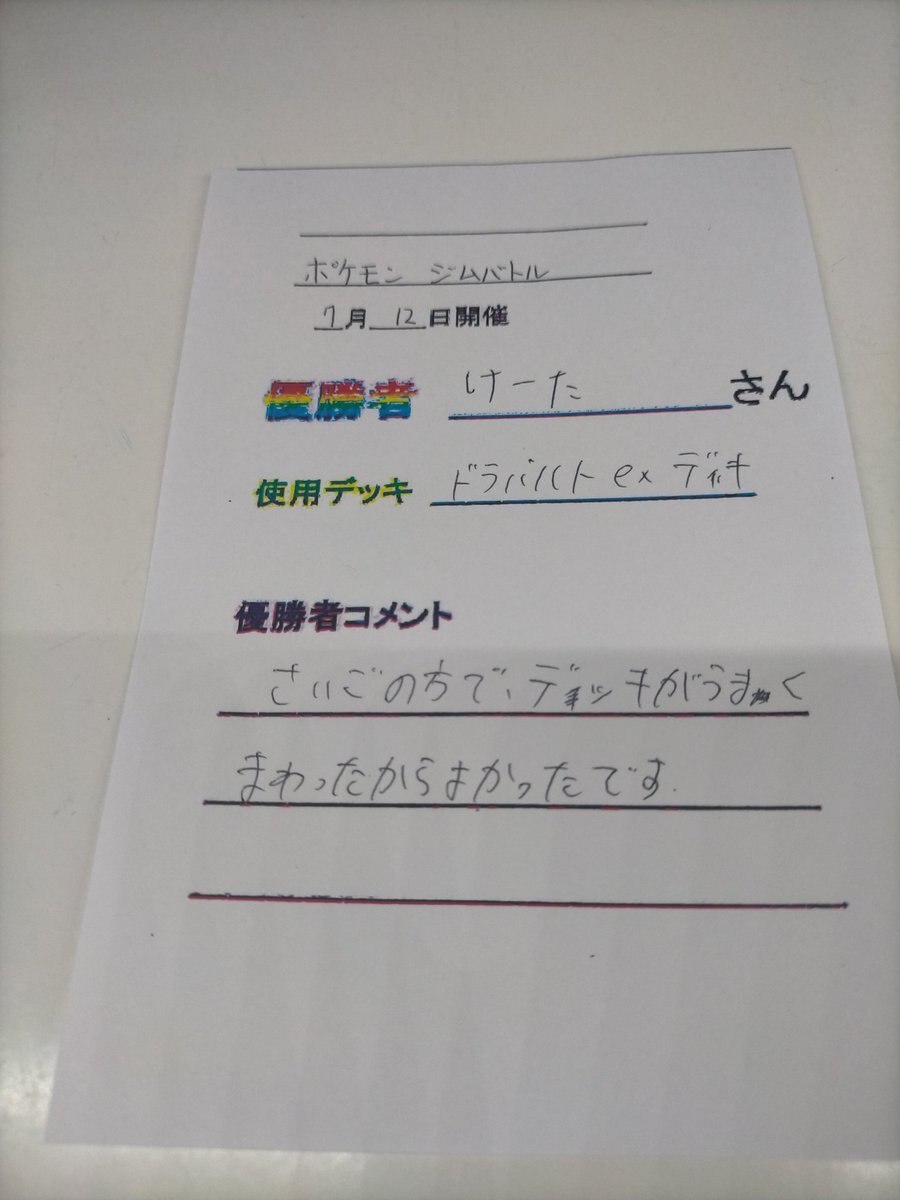 ポケモン ジムバトル
7月 12 日開催
優勝者 けーた さん
使用デッキ ドラパルト ex デッキ
優勝者コメント
さいごの方で、デッキがうまく
まわったからよかったです.